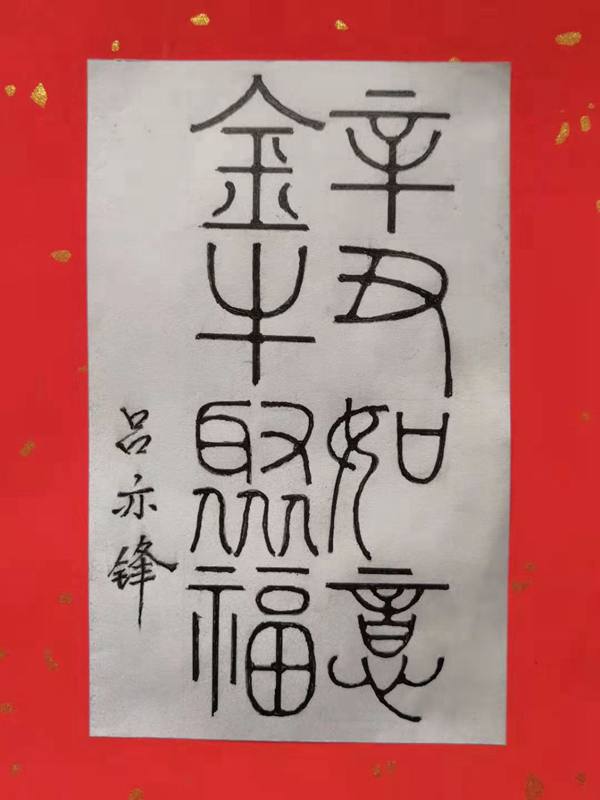 辛丑如意
金牛聚福
吕亦锋